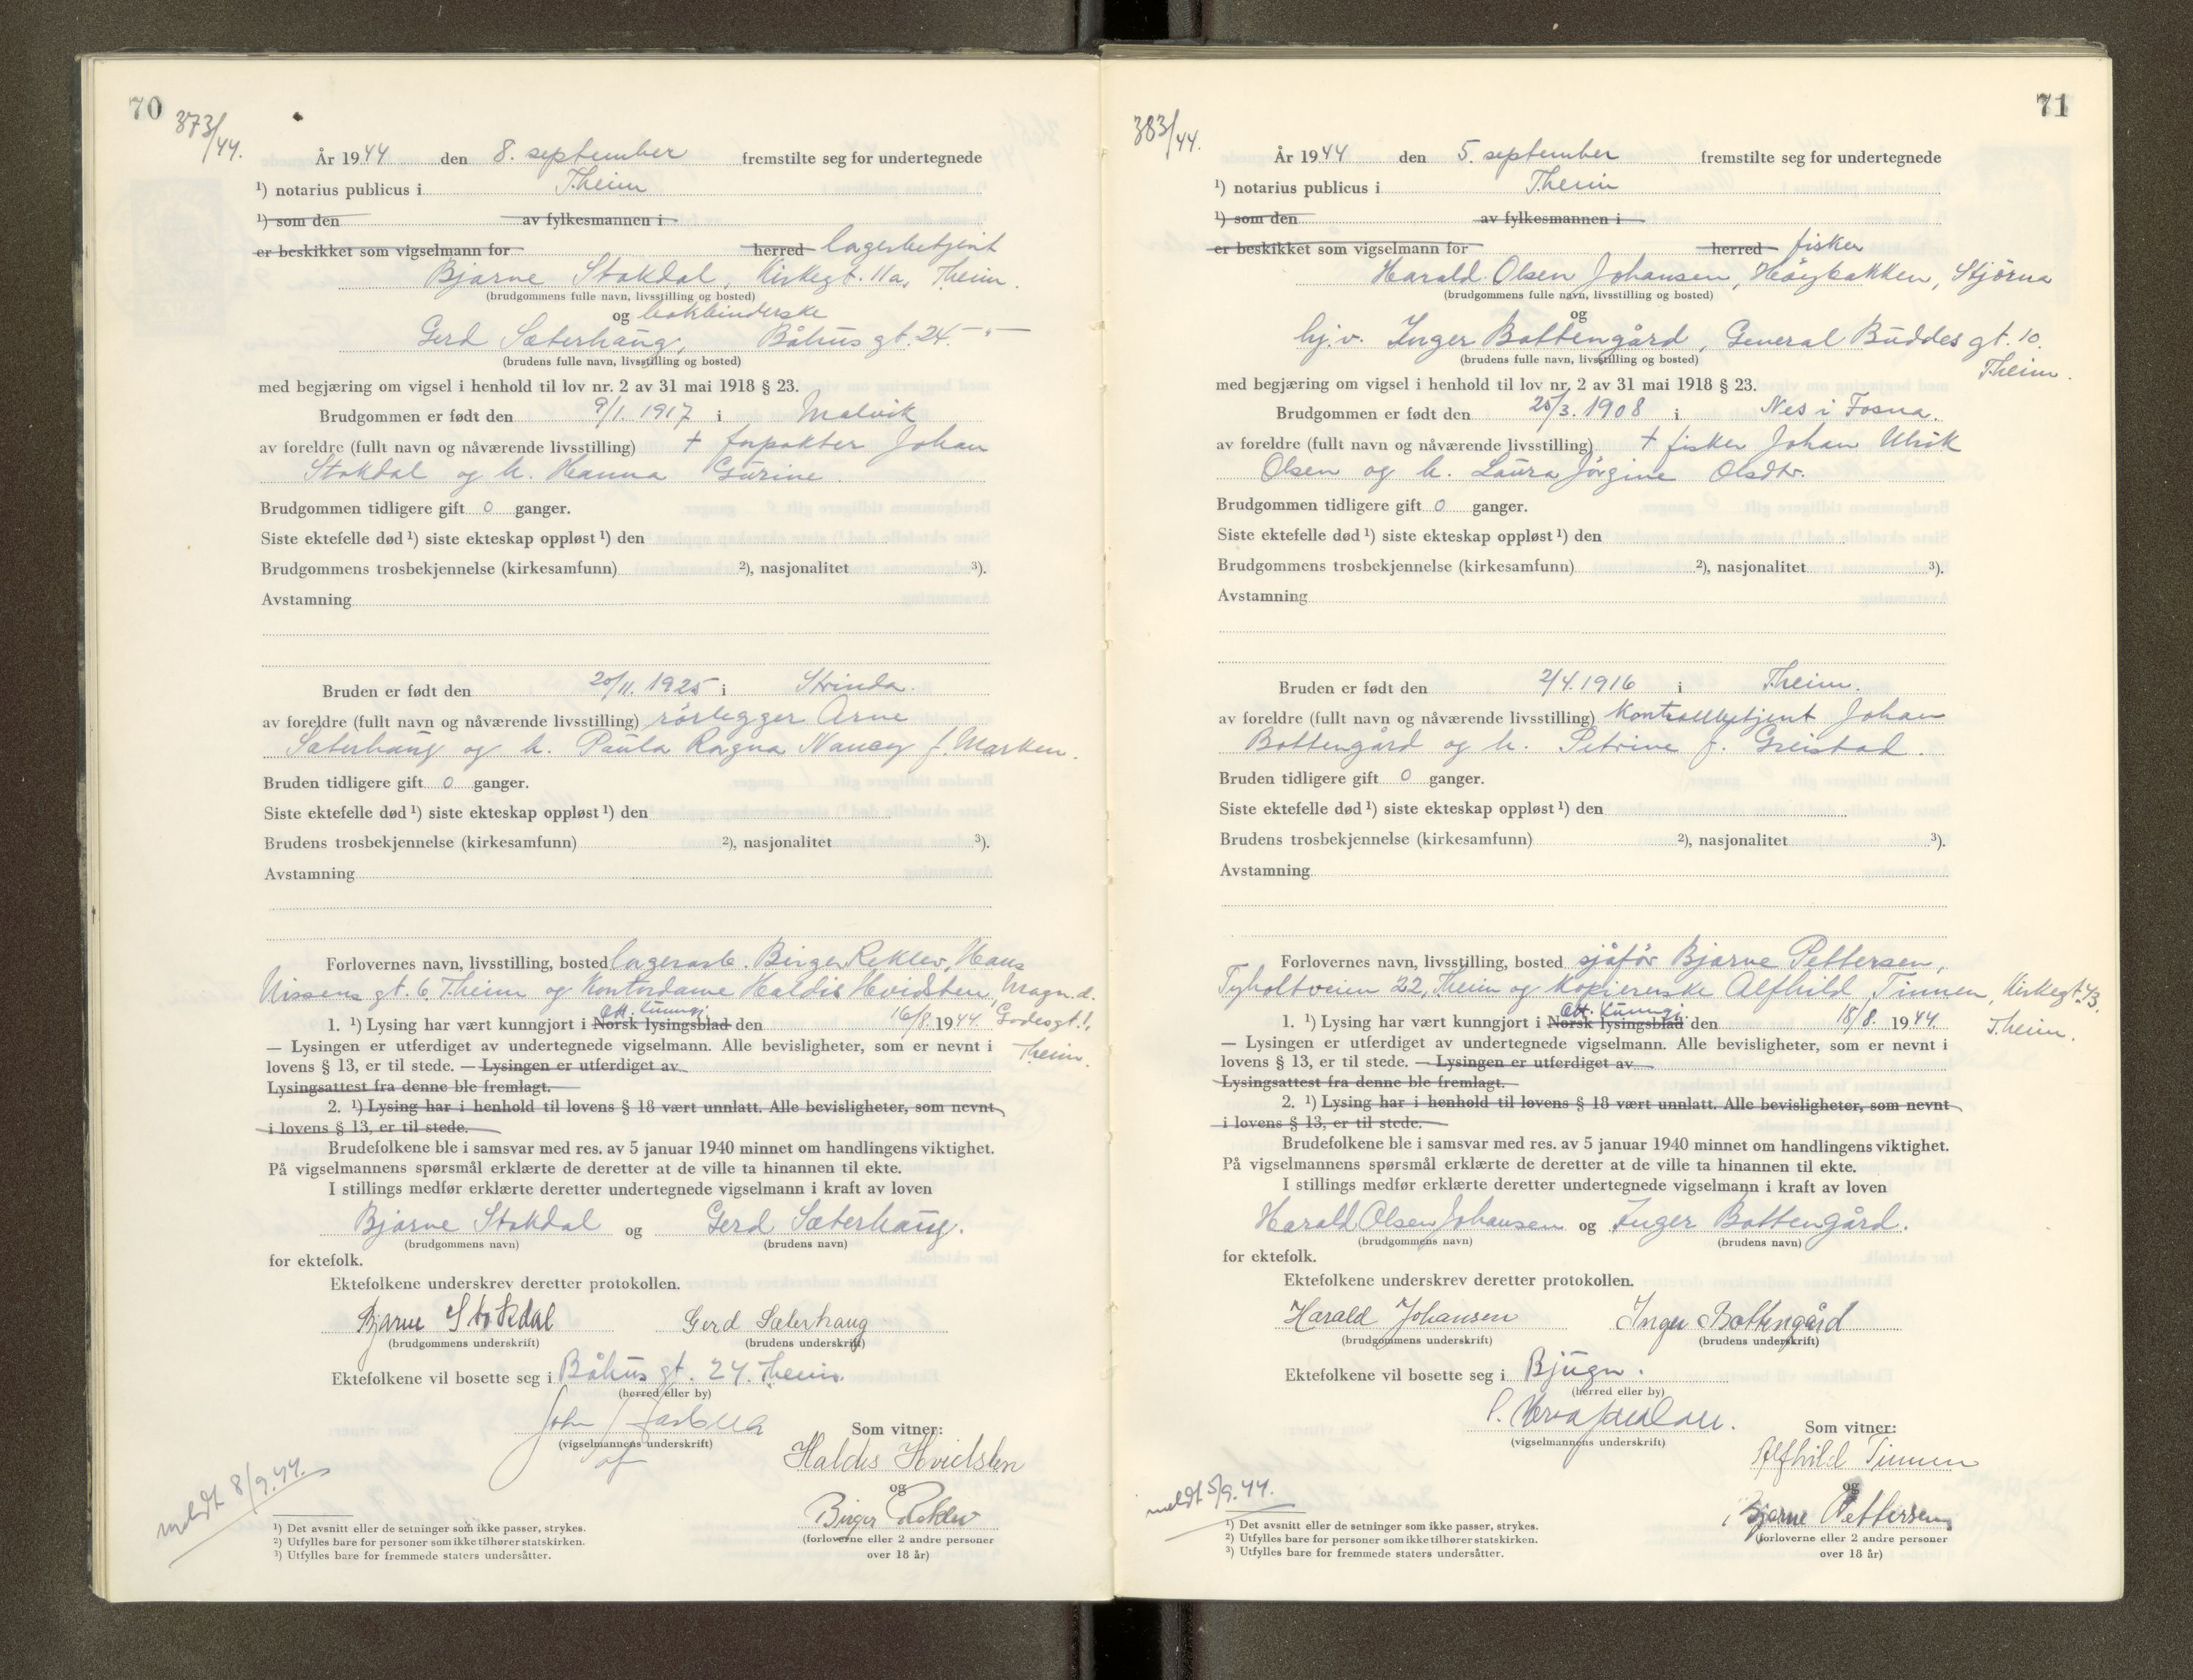 70
373/44.
År 1944 den 8. september fremstilte seg for undertegnede
¹) notarius publicus i T.heim
¹) som den av fylkesmannen i
er beskikket som vigselmann for herred lagerbetjent
Bjarne Stokdal, Kirkegt. 11a, T.heim.
(brudgommens fulle navn, livsstilling og bosted)
og bokbinderske
Gerd Sæterhaug, Båhus gt. 24 - " -
(brudens fulle navn, livsstilling og bosted)
med begjæring om vigsel i henhold til lov nr. 2 av 31 mai 1918 § 23.
Brudgommen er født den 9/1. 1917 i Malvik
av foreldre (fullt navn og nåværende livsstilling) † forpakter Johan
Stokdal og h. Hanna Gurine.
Brudgommen tidligere gift 0 ganger.
Siste ektefelle død ¹) siste ekteskap oppløst ¹) den
Brudgommens trosbekjennelse (kirkesamfunn) ²), nasjonalitet ³).
Avstamning
Bruden er født den 20/11. 1925 i Strinda.
av foreldre (fullt navn og nåværende livsstilling) rørlegger Arne
Sæterhaug og h. Paula Ragna Nancy f. Marken.
Bruden tidligere gift 0 ganger.
Siste ektefelle død ¹) siste ekteskap oppløst ¹) den
Brudens trosbekjennelse (kirkesamfunn) ²), nasjonalitet ³).
Avstamning
Forlovernes navn, livsstilling, bosted lagerarb. Birger Reklev, Hans
Nissens gt. 6, T.heim og kontordame Haldis Hvidsten, Magn. d.
Godesgt. 1, T.heim.
off. kunngj.
1. ¹) Lysing har vært kunngjort i Norsk lysingsblad den 16/8. 1944.
— Lysingen er utferdiget av undertegnede vigselmann. Alle bevisligheter, som er nevnt i
lovens § 13, er til stede. — Lysingen er utferdiget av
Lysingsattest fra denne ble fremlagt.
2. ¹) Lysing har i henhold til lovens § 18 vært unnlatt. Alle bevisligheter, som nevnt
i lovens § 13, er til stede.
Brudefolkene ble i samsvar med res. av 5 januar 1940 minnet om handlingens viktighet.
På vigselmannens spørsmål erklærte de deretter at de ville ta hinannen til ekte.
I stillings medfør erklærte deretter undertegnede vigselmann i kraft av loven
Bjarne Stokdal og Gerd Sæterhaug.
(brudgommens navn) (brudens navn)
for ektefolk.
Ektefolkene underskrev deretter protokollen.
Bjarne Stokdal Gerd Sæterhaug
(brudgommens underskrift) (brudens underskrift)
Ektefolkene vil bosette seg i Båhus gt. 24. T.heim.
(herred eller by)
John
(vigselmannens underskrift)
Som vitner:
Haldis Hvidsten
og
Birger Reklev
(forloverne eller 2 andre personer
over 18 år)
meldt 8/9.44.
¹) Det avsnitt eller de setninger som ikke passer, strykes.
²) Utfylles bare for personer som ikke tilhører statskirken.
³) Utfylles bare for fremmede staters undersåtter.
71
383/44.
År 1944 den 5. september fremstilte seg for undertegnede
¹) notarius publicus i T.heim
¹) som den av fylkesmannen i
er beskikket som vigselmann for herred fisker
Harald Olsen Johansen, Høybakken, Stjørna
(brudgommens fulle navn, livsstilling og bosted)
og
hj.v. Inger Bottengård, General Buddes gt. 10.
T.heim.
(brudens fulle navn, livsstilling og bosted)
med begjæring om vigsel i henhold til lov nr. 2 av 31 mai 1918 § 23.
Brudgommen er født den 25/3. 1908 i Nes i Fosna.
av foreldre (fullt navn og nåværende livsstilling) † fisker Johan Ulrik
Olsen og h. Laura Jørgine Olsdtr.
Brudgommen tidligere gift 0 ganger.
Siste ektefelle død ¹) siste ekteskap oppløst ¹) den
Brudgommens trosbekjennelse (kirkesamfunn) ²), nasjonalitet ³).
Avstamning
Bruden er født den 2/4. 1916 i T.heim.
av foreldre (fullt navn og nåværende livsstilling) kontrollbetjent Johan
Bottengård og h. Petrine f. Greistad.
Bruden tidligere gift 0 ganger.
Siste ektefelle død ¹) siste ekteskap oppløst ¹) den
Brudens trosbekjennelse (kirkesamfunn) ²), nasjonalitet ³).
Avstamning
Forlovernes navn, livsstilling, bosted sjåfør Bjarne Pettersen,
Tyholtveien 22, T.heim og kopierenske Alfhild Tinnen, Kirkegt. 43.
T.heim.
off. kunngj.
1. ¹) Lysing har vært kunngjort i Norsk lysingsblad den 18/8. 1944.
— Lysingen er utferdiget av undertegnede vigselmann. Alle bevisligheter, som er nevnt i
lovens § 13, er til stede. — Lysingen er utferdiget av
Lysingsattest fra denne ble fremlagt.
2. ¹) Lysing har i henhold til lovens § 18 vært unnlatt. Alle bevisligheter, som nevnt
i lovens § 13, er til stede.
Brudefolkene ble i samsvar med res. av 5 januar 1940 minnet om handlingens viktighet.
På vigselmannens spørsmål erklærte de deretter at de ville ta hinannen til ekte.
I stillings medfør erklærte deretter undertegnede vigselmann i kraft av loven
Harald Olsen Johansen og Inger Bottengård.
(brudgommens navn) (brudens navn)
for ektefolk.
Ektefolkene underskrev deretter protokollen.
Harald Johansen Inger Bottengård
(brudgommens underskrift) (brudens underskrift)
Ektefolkene vil bosette seg i Bjugn.
(herred eller by)
(vigselmannens underskrift)
Som vitner:
Alfhild Tinnen
og
Bjarne Pettersen
(forloverne eller 2 andre personer
over 18 år)
meldt 5/9.44.
¹) Det avsnitt eller de setninger som ikke passer, strykes.
²) Utfylles bare for personer som ikke tilhører statskirken.
³) Utfylles bare for fremmede staters undersåtter.